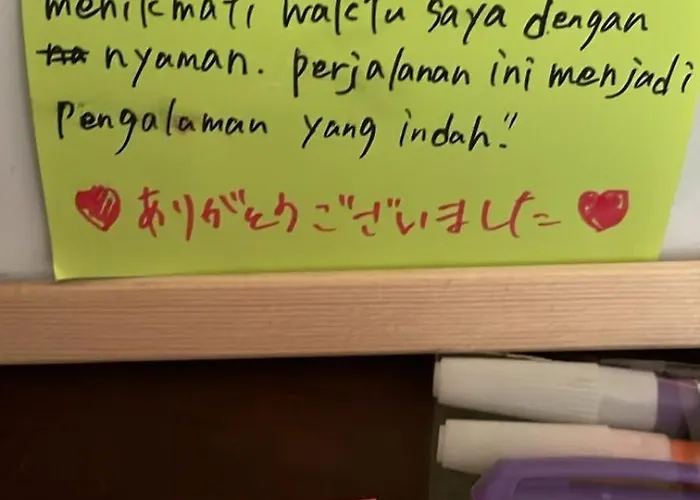 menikmati waktu saya dengan
nyaman. perjalanan ini menjadi
Pengalaman yang indah."
ありがとうございました